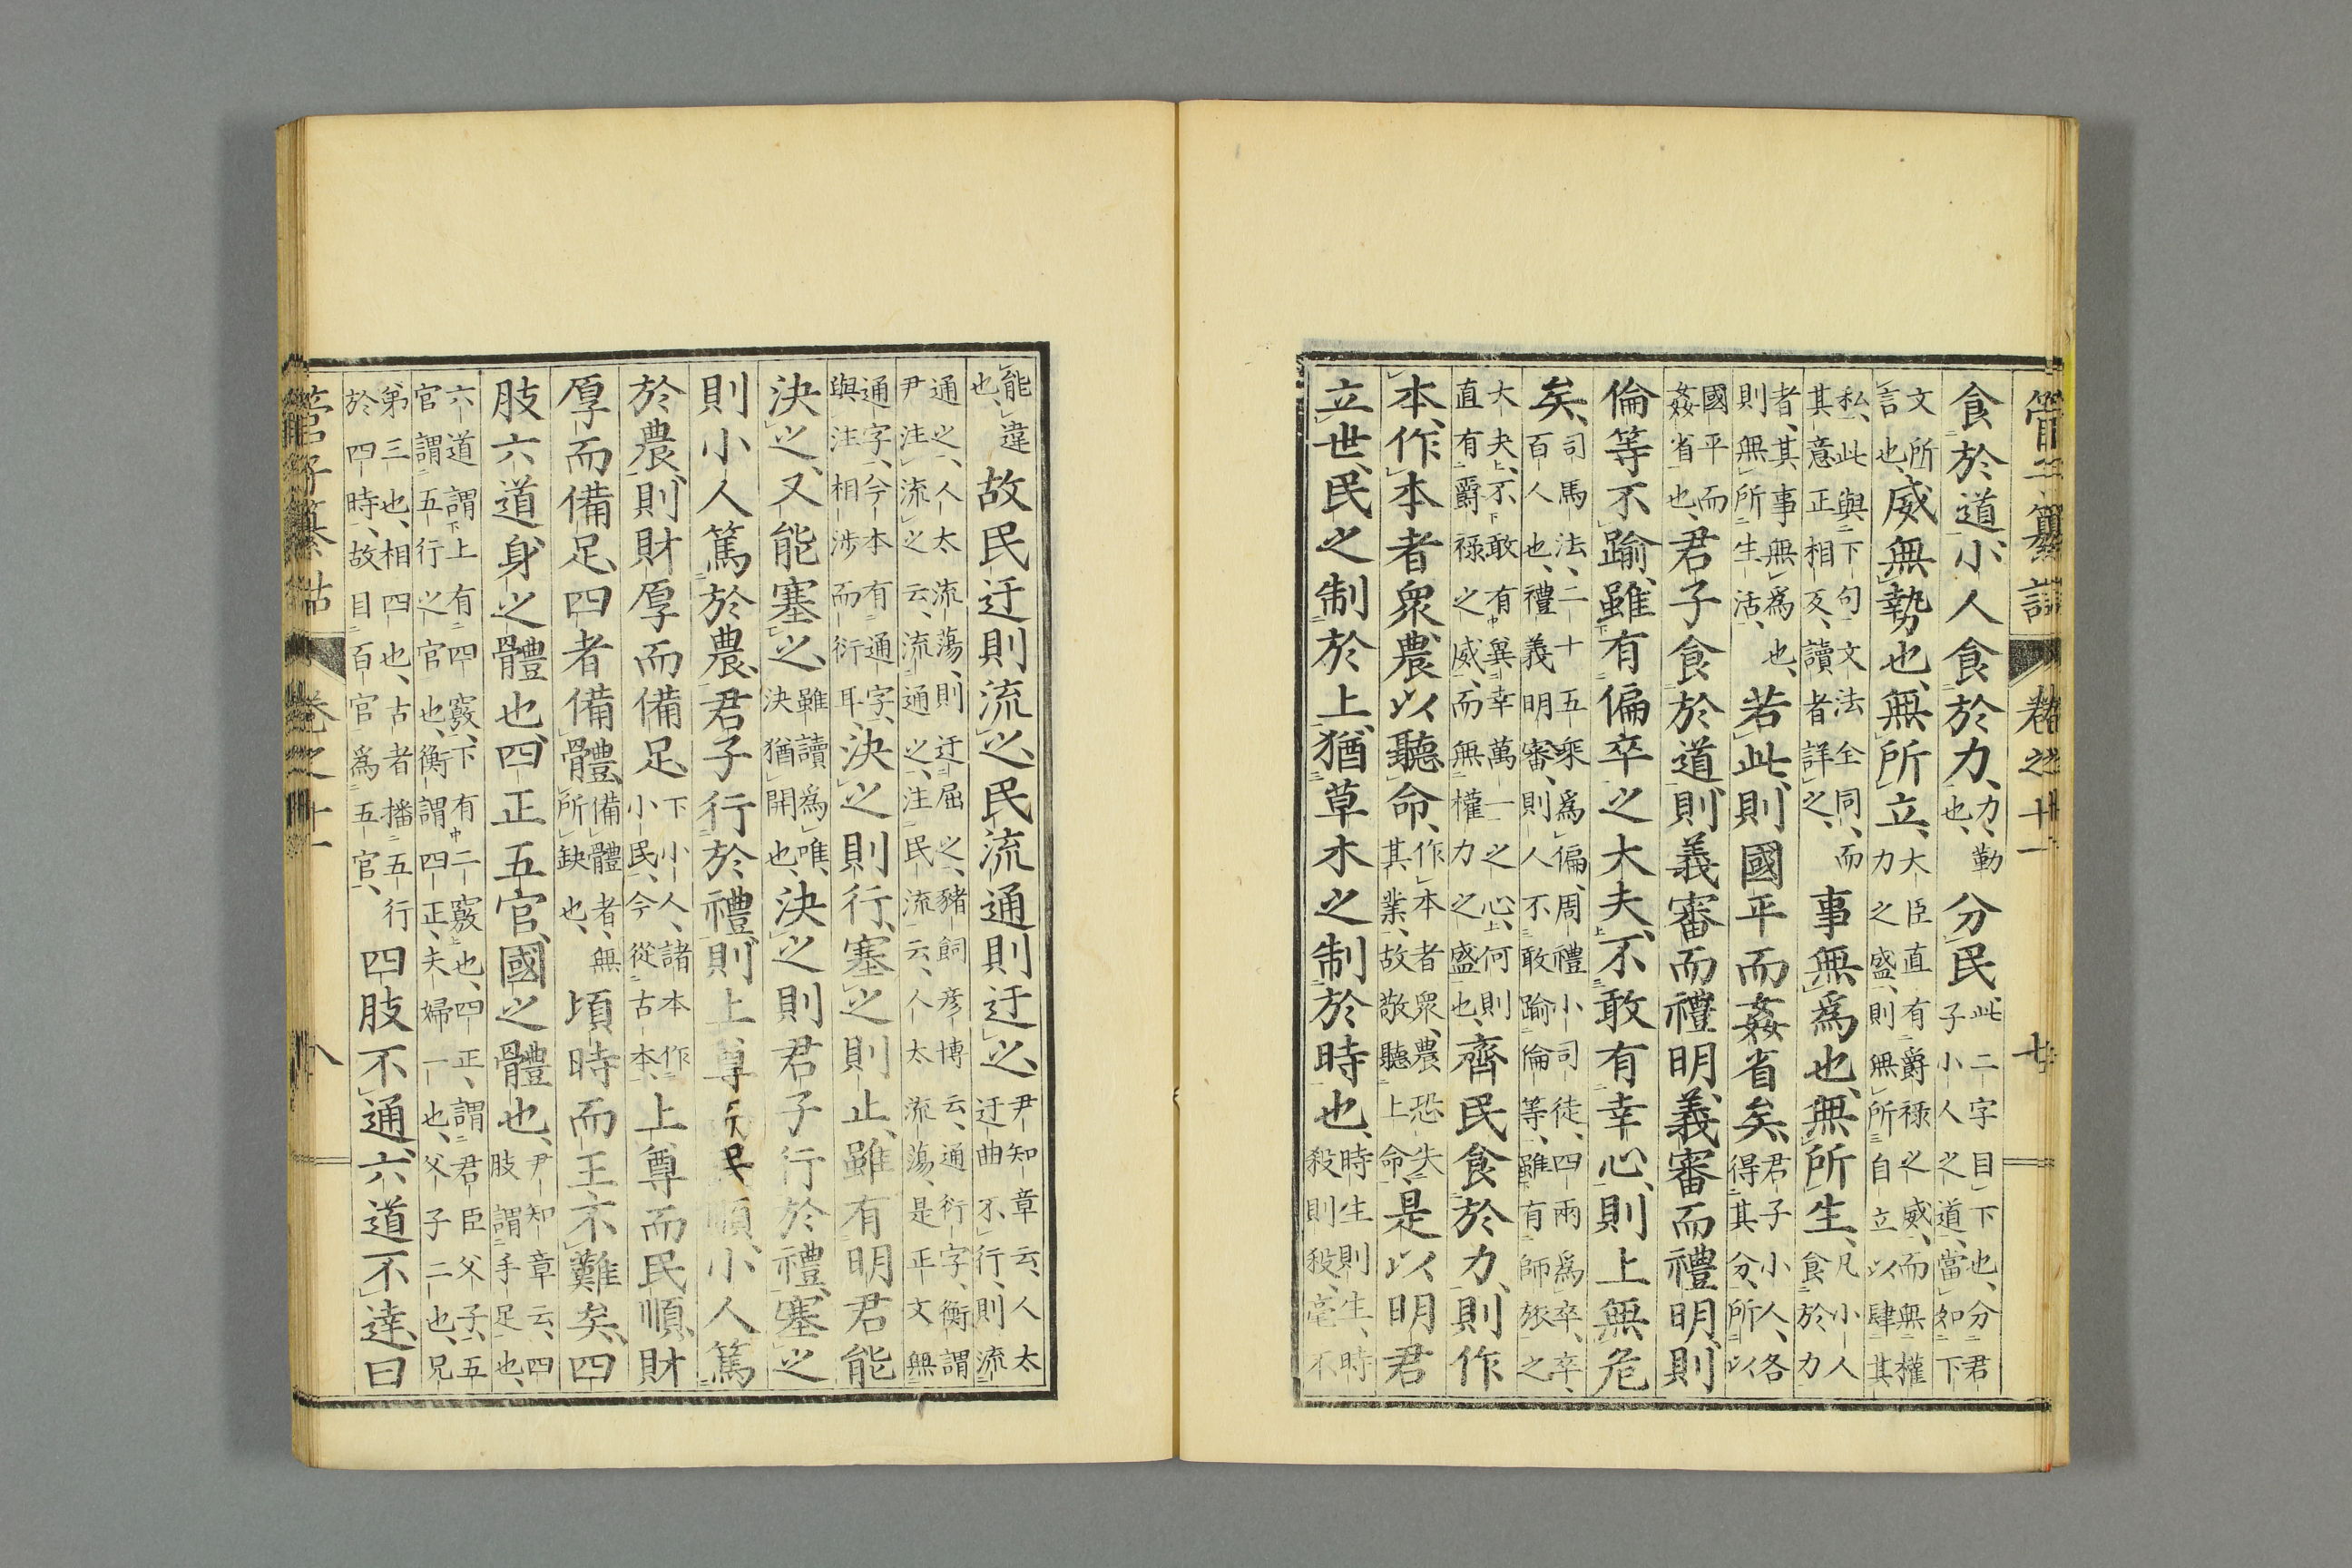 管子纂詁 卷之十一 七
食於道、小人食於力、力、勤也、分民此二字目下也、分君子小人之道、當如下
文所言也、威無勢也、無所立、大臣直有爵祿之威、而無權力之盛、則無所自立以肆其
私、此與下句文法全同、而其意正相反、讀者詳之、事無爲也、無所生、凡小人食於力
者、其事無爲也、則無所生活、若此、則國平而姦省矣、君子小人、各得其分、所以
國平而姦省也、君子食於道、則義審而禮明、義審而禮明、則
倫等不踰、雖有偏卒之大夫、不敢有幸心、則上無危
矣、司馬法、二十五乘爲偏、周禮小司徒、四兩爲卒、卒、百人也、禮義明審、則人不敢踰倫等、雖有師旅之
大夫、不敢有冀幸萬一之心、何則直有爵祿之威、而無權力之盛也、齊民食於力、則作
本、作本者衆、農以聽命、作本者衆、農恐失其業、故敬聽上命、是以明君
立世、民之制於上、猶草木之制於時也、時生則生、時殺則殺、毫不
能違也、故民迂則流之、民流通則迂之、尹知章云、人太迂曲不行、則流
通之、人太流蕩、則迂屈之、豬飼彥博云、通衍字、衡謂尹注流之云、流通之、注民流云、人太流蕩、是正文無
通字、今本有通字、與注相涉而衍耳、決之則行、塞之則止、雖有明君能
決之、又能塞之、雖讀爲唯、決猶開也、決之則君子行於禮、塞之
則小人篤於農、君子行於禮、則上尊而民順、小人篤
於農、則財厚而備足、下小人、諸本作小民、今從古本、上尊而民順、財
厚而備足、四者備體、備體者、無所缺也、頃時而王不難矣、四
肢六道、身之體也、四正五官、國之體也、尹知章云、四肢謂手足也、
六道謂上有四竅、下有二竅也、四正、謂君臣父子、五官謂五行之官也、衡謂四正、夫婦一也、父子二也、兄
弟三也、相四也、古者播五行於四時、故目百官爲五官、四肢不通、六道不達、曰
管子纂詁 卷之十一 八